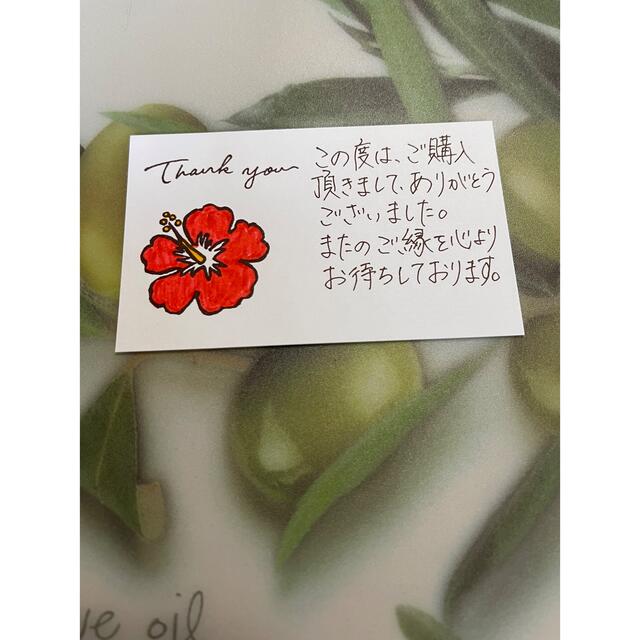 Thank you
この度は、ご購入
頂きまして、ありがとう
ございました。
またのご縁を心より
お待ちしております。
ve oil